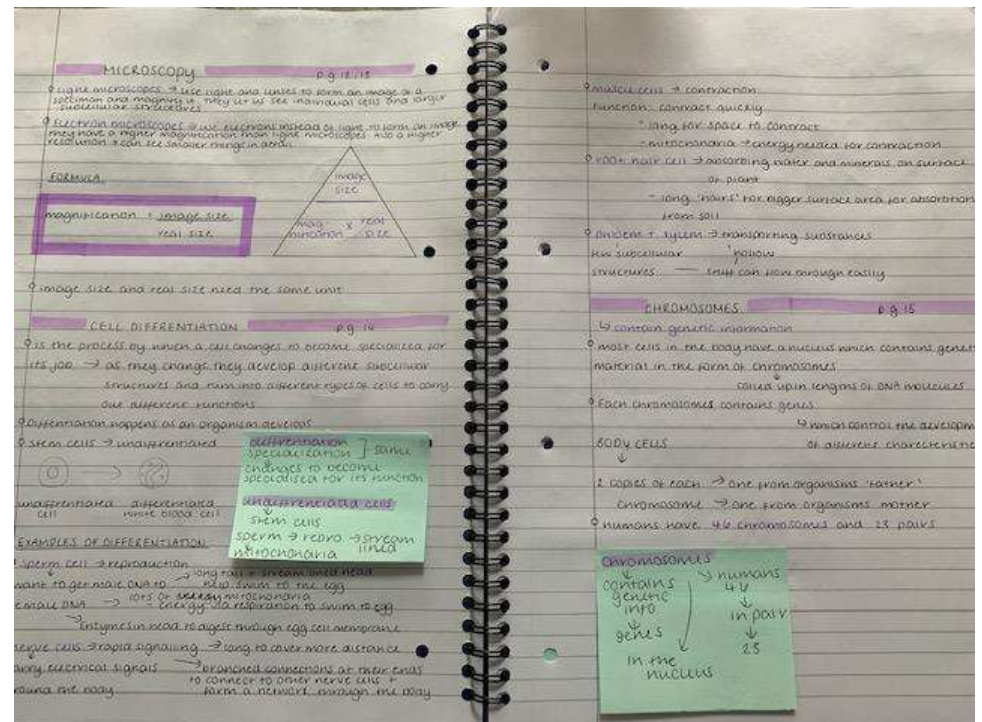 MICROSCOPY pg 12,13
light microscopes → use light and lenses to form an image of a
speciman and magnify it. They let us see individual cells and larger
subcellular structures
Electron microscopes → use electrons instead of light to form an image
they have a higher magnification than light microscopes. Also a higher
resolution → can see smaller things in detail
FORMULA
magnification = image size
real size
image
size
mag
nification x real
size
image size and real size need the same unit
CELL DIFFRENTIATION pg 14
is the process by which a cell changes to become specialised for
its job → as they change they develop different subcellular
structures and turn into different types of cells to carry
out different functions
Differentiation happens as an organism develops
stem cells → undifferentiated
undifferentiated differentiated
cell white blood cell
diffrentiation
specialization ] same
changes to become
specialised for its function
undiffrentiated cells
stem cells
sperm → repro → stream
lined
mitochonaria
EXAMPLES OF DIFFERENTIATION
sperm cell → reproduction
want to get male DNA to → long tail + stream lined head
help swim to the egg
emale DNA → lots of mitochonaria
- energy via respiration to swim to egg
Enzymes in head to digest through egg cell membrane
nerve cells → rapid signalling → long to cover more distance
arry electrical signals → branched connections at their ends
to connect to other nerve cells +
round the body form a network through the body
muscle cells → contraction
function: contract quickly
- long for space to contract
- mitochonaria → energy needed for contraction
root hair cell → absorbing water and minerals on surface
of plant
- long 'hairs' for bigger surface area for absorption
from soil
phloem + xylem → transporting substances
few subcellular hollow
structures — stuff can flow through easily
CHROMOSOMES pg.15
↳ contain genetic information
most cells in the body have a nucleus which contains genet
material in the form of chromosomes
coiled up in lengths of DNA molecules
Each chromosomes contains genes
↳ which control the developm
BODY CELLS of different charecteristic
↓
2 copies of each → one from organisms 'father'
chromosome → one from organisms mother
humans have 46 chromosomes and 23 pairs
chromosomes
contains
genetic
info
genes
in the
nucleus
humans
46
in pair
23